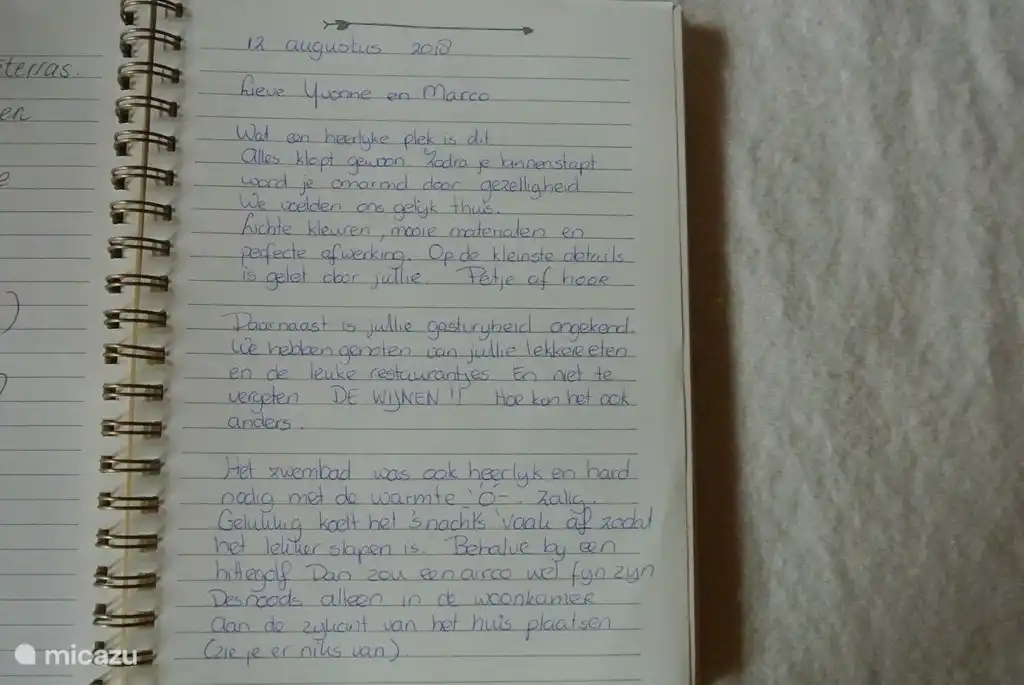 terras.
en
e
)
12 augustus 2018
Lieve Yvonne en Marco
Wat een heerlyke plek is dit
Alles klopt gewoon. Zodra je binnenstapt
word je omarmd door gezelligheid
We voelden ons gelijk thuis.
Lichte kleuren, mooie materialen en
perfecte afwerking. Op de kleinste details
is gelet door jullie. Petje af hoor
Daarnaast is jullie gastvryheid ongekend.
We hebben genoten van jullie lekkere eten
en de leuke restaurantjes. En niet te
vergeten DE WIJNEN !! Hoe kan het ook
anders.
Het zwembad was ook heerlyk en hard
nodig met de warmte. Zalig.
Gelukkig koelt het 's nachts vaak af zodat
het lekker slapen is. Behalve by een
hittegolf Dan zou een airco wel fyn zyn
Desnoods alleen in de woonkamer
Aan de zykant van het huis plaatsen
(zie je er niks van).
micazu